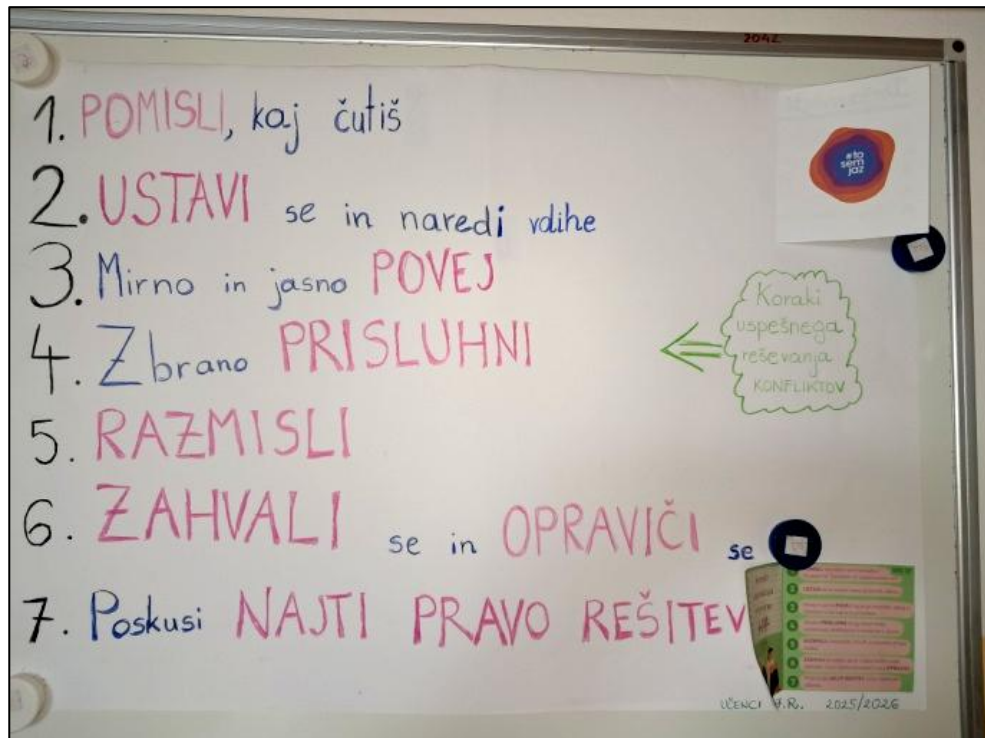 2042
1. POMISLI, kaj čutiš
2. USTAVI se in naredi vdihe
3. Mirno in jasno POVEJ
4. Zbrano PRISLUHNI
5. RAZMISLI
6. ZAHVALI se in OPRAVIČI se
7. Poskusi NAJTI PRAVO REŠITEV
#to
sem
jaz
Koraki
uspešnega
reševanja
KONFLIKTOV
1
2
3
4
5
6
7
UČENCI 7.R. 2025/2026